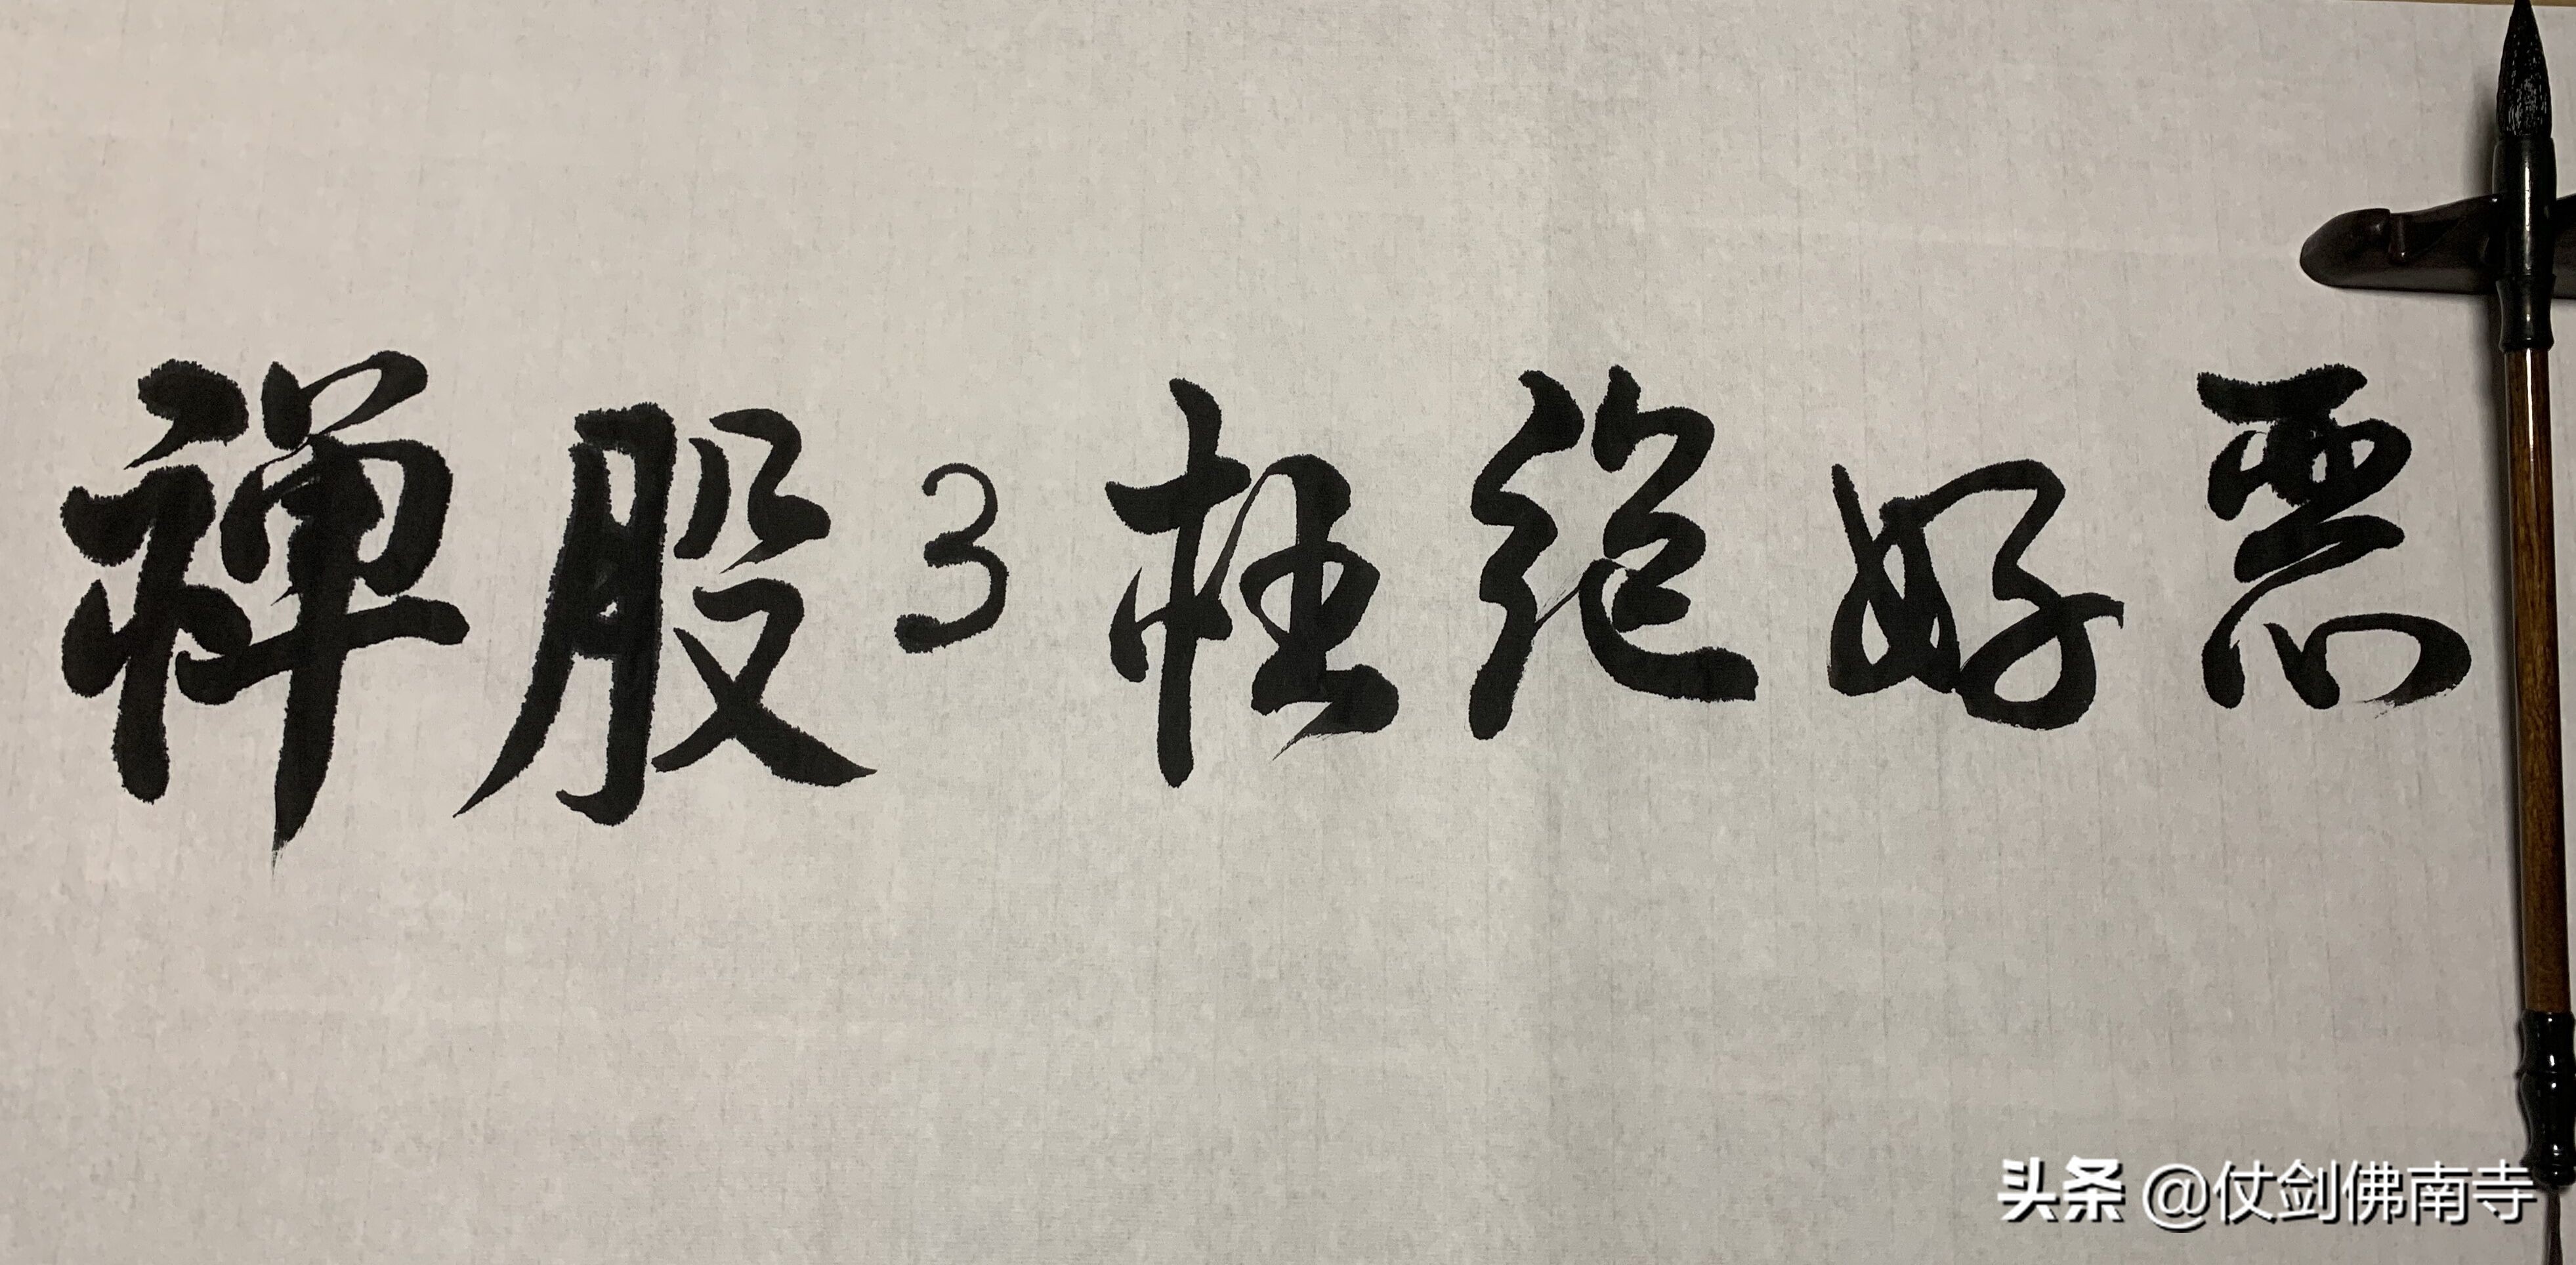 禅股3柱绝好恶
头条 @仗剑佛南寺